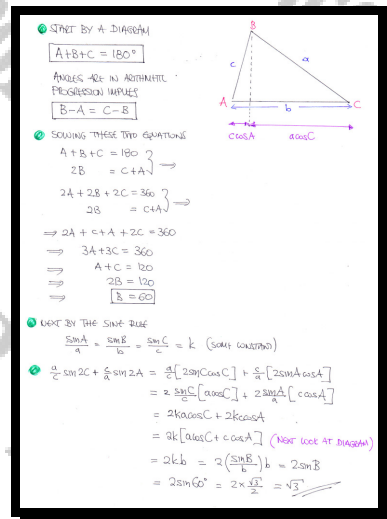 START BY A DIAGRAM
A+B+C = 180°
ANGLES ARE IN ARITHMETIC
PROGRESSION IMPLIES
B-A = C-B
B
c
a
A
b
C
ccosA
acosC
SOLVING THESE TWO EQUATIONS
A+B+C = 180
2B = C+A
⇒
2A + 2B + 2C = 360
2B = C+A
⇒
⇒ 2A + C+A + 2C = 360
⇒ 3A+3C = 360
⇒ A+C = 120
⇒ 2B = 120
⇒ B = 60
NEXT BY THE SINE RULE
sinA/a = sinB/b = sinC/c = k (SOME CONSTANT)
a/c sin2C + c/a sin2A = a/c[2sinCcosC] + c/a[2sinAcosA]
= 2 sinC/c [acosC] + 2 sinA/a [ccosA]
= 2kacosC + 2kccosA
= 2k[acosC + ccosA] (NEXT LOOK AT DIAGRAM)
= 2kb = 2(sinB/b)b = 2sinB
= 2sin60° = 2×√3/2 = √3